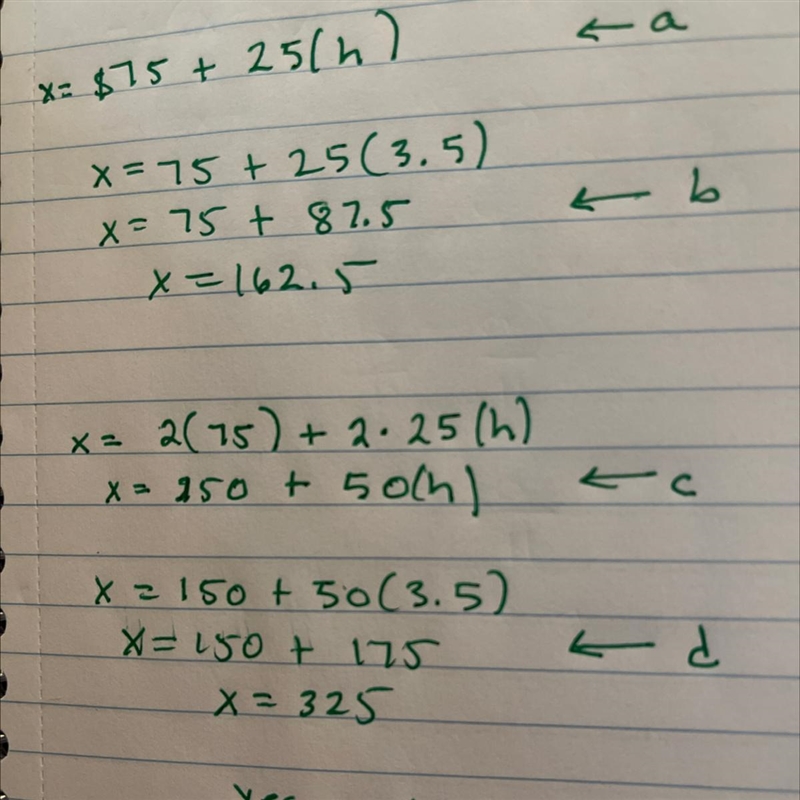 x= $75 + 25(h) ← a
x = 75 + 25(3.5)
x = 75 + 87.5 ← b
x = 162.5
x = 2(75) + 2 · 25(h)
x = 150 + 50(h) ← c
x = 150 + 50(3.5)
x = 150 + 175 ← d
x = 325